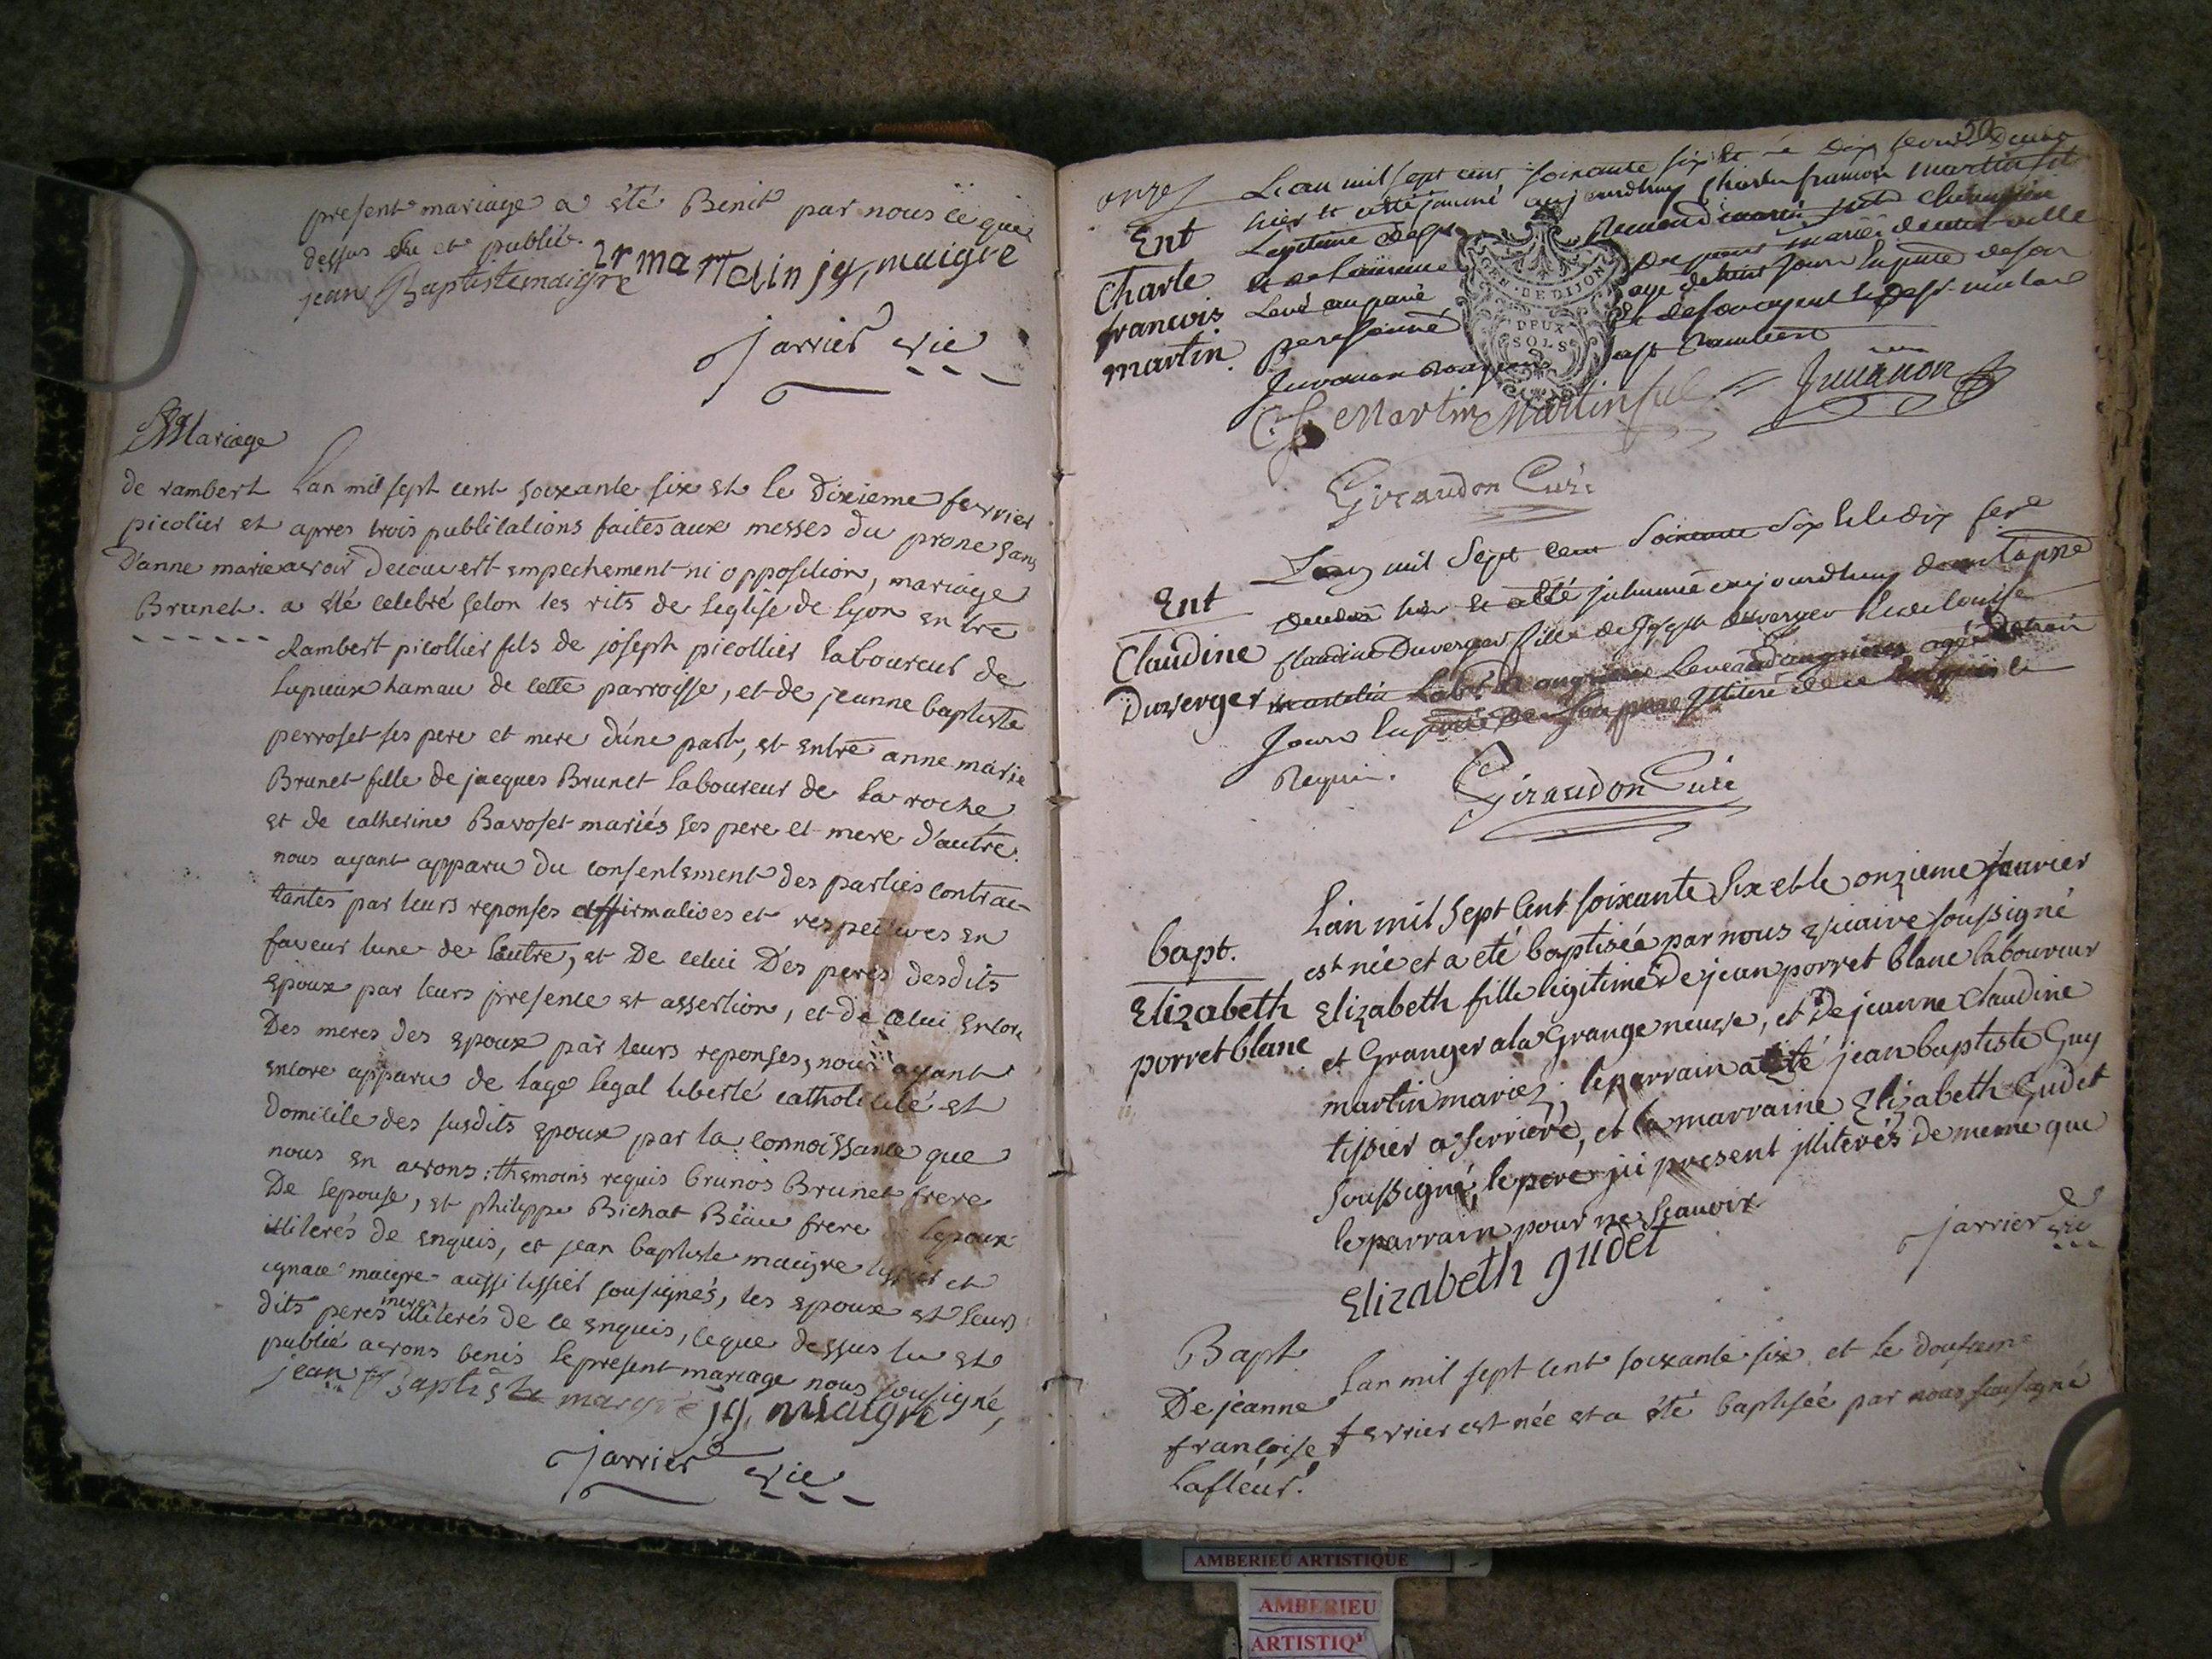 present mariage a été Benit par nous ce que
dessus lu et publié.
jean Baptiste maigre jg, maigre
jarrier vic
Mariage
de rambert
picolier et
D'anne marie
Brunet.
Lan mil sept cent soixante six et le dixieme fevrier
apres trois publications faites aux messes du prone sans
avoir decouvert empechement ni opposition, mariage
a été celebré selon les rits de leglise de lyon entre
Rambert picollier fils de joseph picollier laboureur de
lupieux hamau de cette parroisse, et de jeanne baptiste
perroset ses pere et mere d'une part, et entre anne marie
Brunet fille de jacques Brunet laboureur de la roche
et de catherine Bavoset mariés ses pere et mere d'autre.
nous ayant apparu du consentement des parties contrac-
tantes par leurs reponses affirmatives et respectives en
faveur lune de lautre, et De celui Des peres desdits
epoux par leurs presence et assertion, et de celui encore
Des meres des epoux par leurs reponses, nous ayant
encore apparu de lage legal liberté catholicité et
domicile des susdits epoux par la connoissance que
nous en avons : themoins requis brunos Brunet frere
De lepouse, et philippe Bichat Beau frere lepoux
illiterés de enquis, et jean baptiste maigre tissier et
ignace maigre aussi tissier sousignés, les epoux et leurs
dits peres meres illiterés de ce enquis, ce que dessus lu et
publié avons benis le present mariage nous sousigné,
jean Baptiste maigre jg. maigre
jarrier vic
50
onze
Ent
Charle
francois
martin.
L'an mil sept cent soixante six et le dix fevrier
hier et esté inhumé aujourdhuy Charles francois martin fils
Legitime
age de huit jours
C. f. Martin Martin fils Juvanon
Giraudon Curé
Ent
Claudine
Duverger
Lan mil Sept cent Soixante Six et le dix
hier et a été inhumée aujourdhuy
claudine Duverger fille de Joseph duverger et de louise
Requis.
Giraudon Curé
bapt.
Elizabeth
porret blanc
L'an mil sept cent soixante six et le onzieme fevrier
est née et a eté baptisée par nous vicaire soussigné
Elizabeth fille legitime de jean porret blanc laboureur
et Granger a la Grange neuve, et de jeanne Claudine
martin mariez; le parrain a eté jean baptiste Guy
tissier a serriere, et la marraine Elizabeth Gudet
soussigné, le pere ici present illiterés de meme que
le parrain pour ne scavoir
Elizabeth gudet
jarrier vic
Bapt.
De jeanne
francoise
Lafleur.
Lan mil sept cent soixante six et le dousieme
fevrier est née et a été baptisée par nous sousigné
GEN. DE DIJON
DEUX
SOLS
AMBERIEU ARTISTIQUE
AMBERIEU
ARTISTIQ